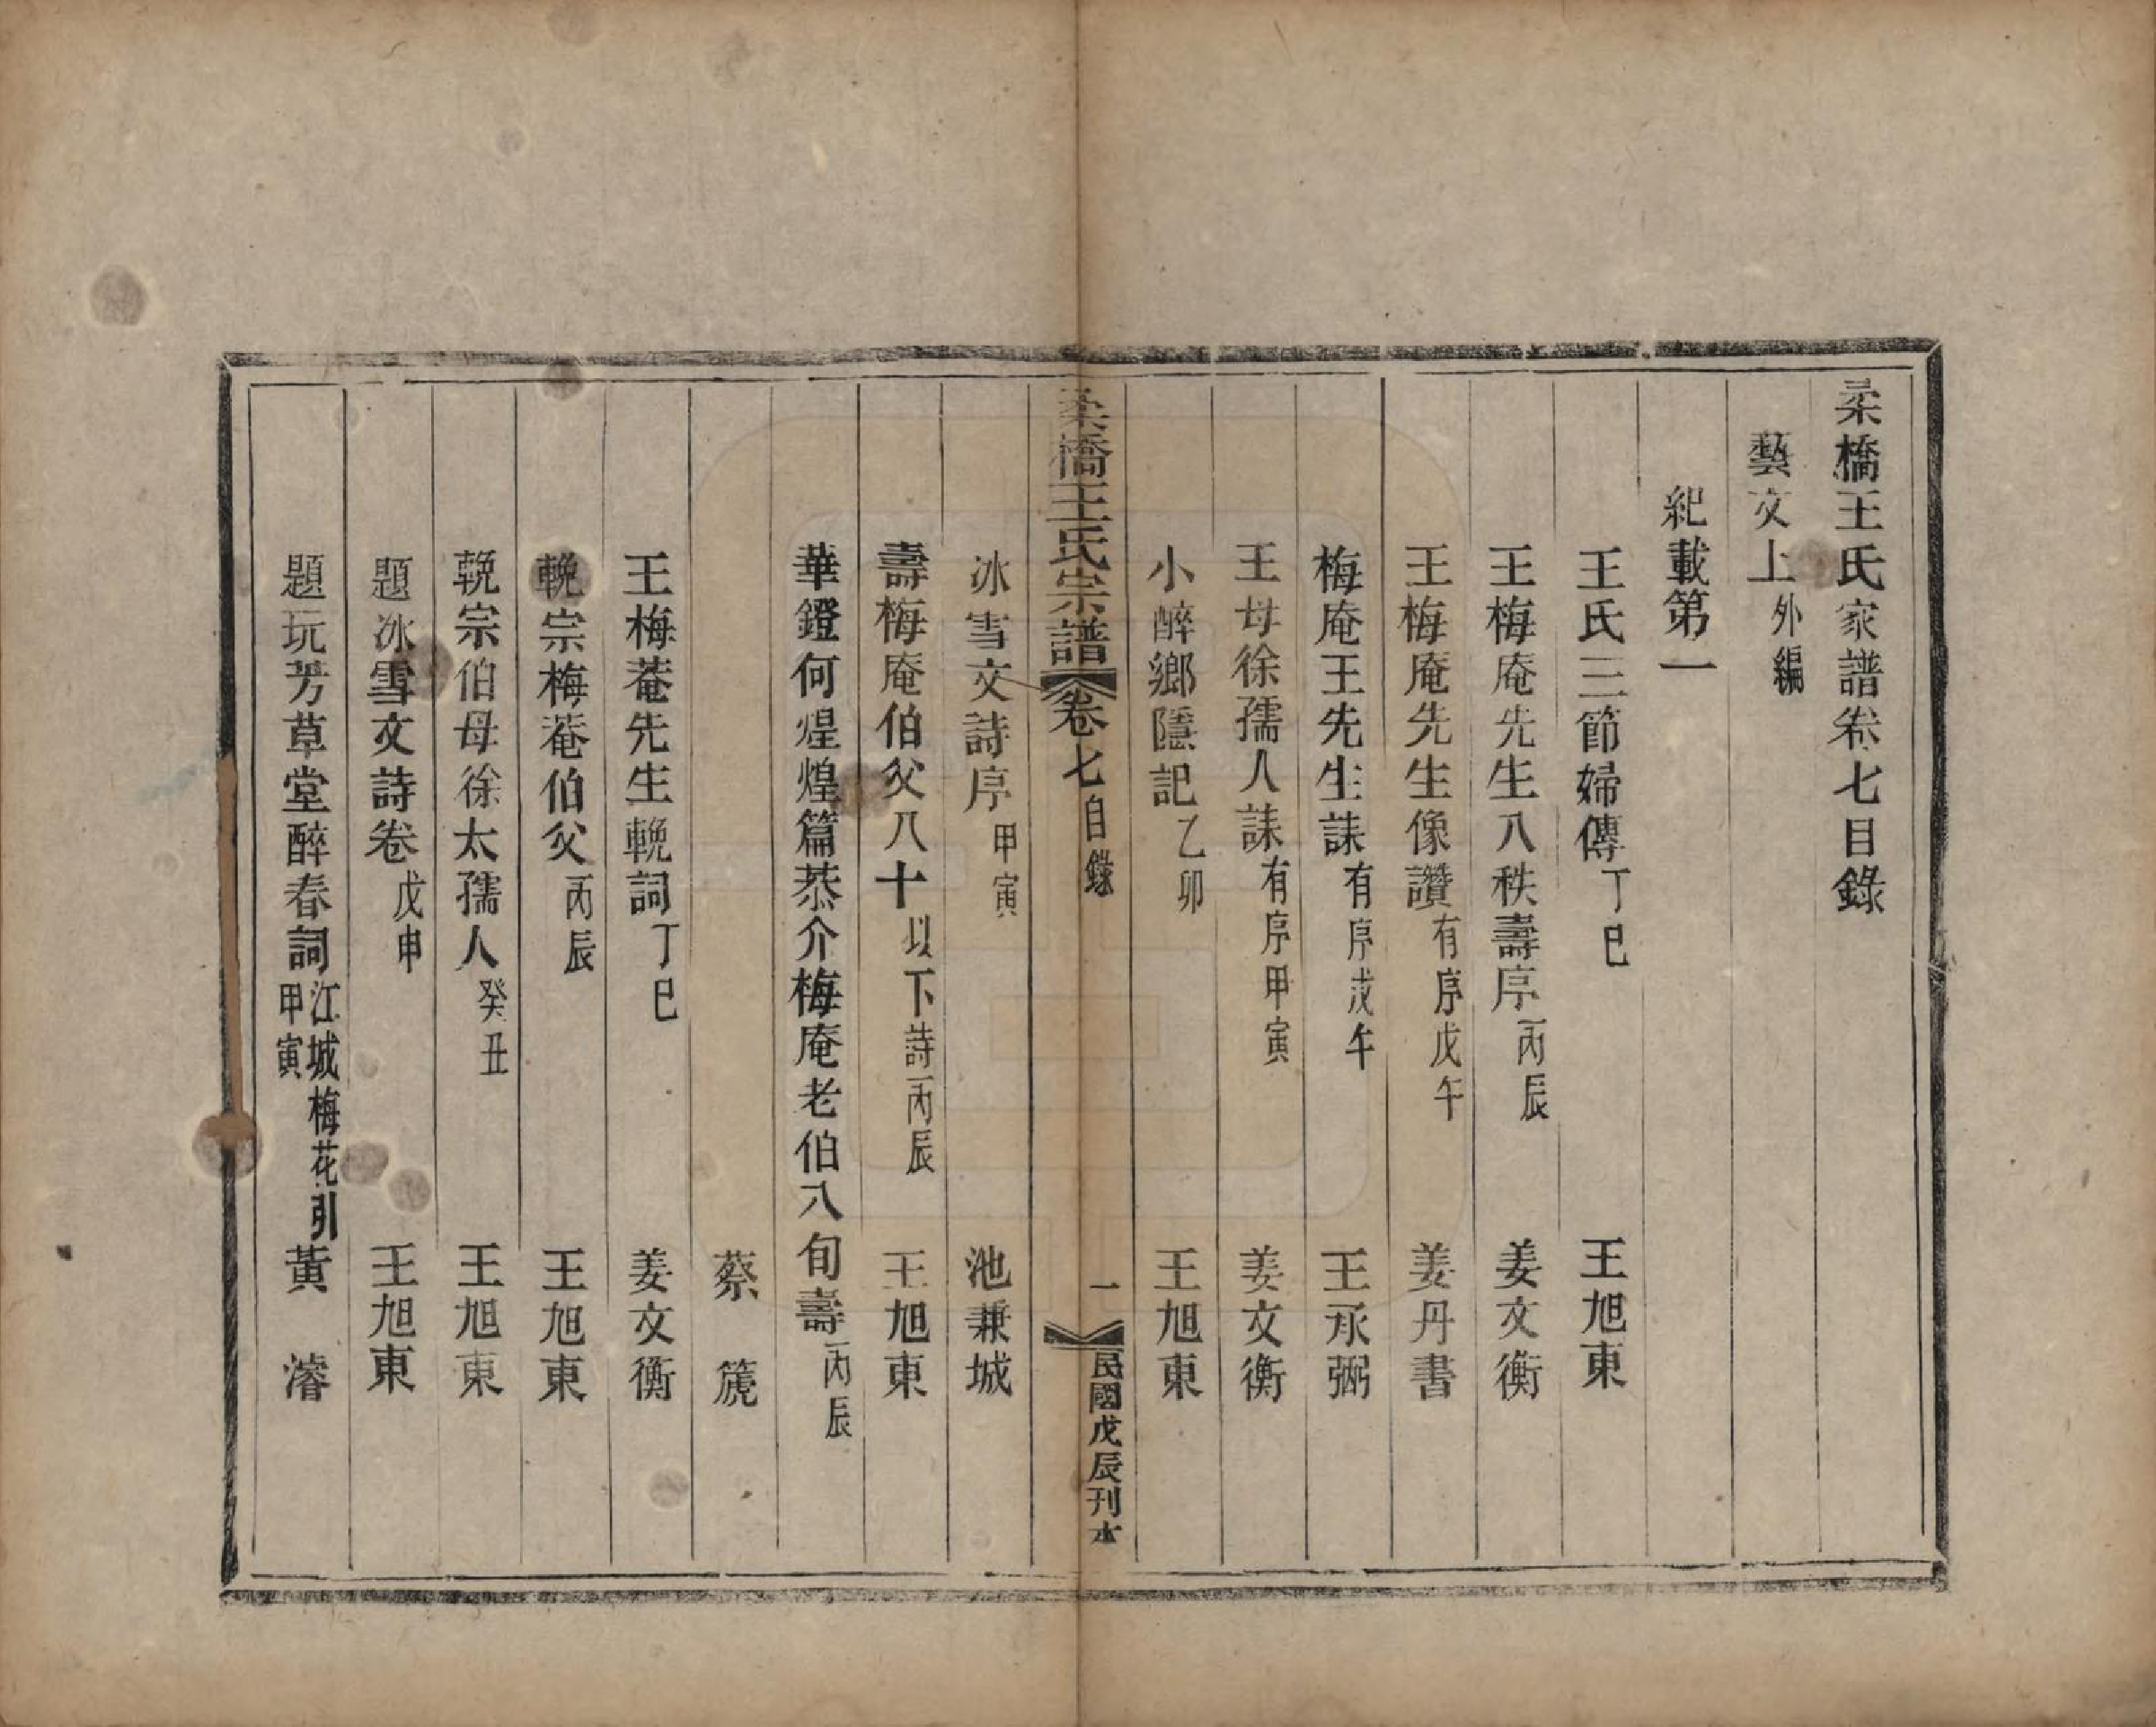 柔橋王氏家譜卷七目錄
藝文上外編
紀載第一
王氏三節婦傳丁巳 王旭東
王梅庵先生八秩壽序丙辰 姜文衡
王梅庵先生像讚有序戊午 姜丹書
梅庵王先生誄有序戊午 王承弼
王母徐孺人誄有序甲寅 姜文衡
小醉鄉隱記乙卯 王旭東
柔橋王氏宗譜 卷七目錄 一 民國戊辰刊本
冰雪文詩序甲寅 池兼城
壽梅庵伯父八十以下詩丙辰 王旭東
華鐙何煌煌篇恭介梅庵老伯八旬壽丙辰
蔡篪
王梅菴先生輓詞丁巳 姜文衡
輓宗梅菴伯父丙辰 王旭東
輓宗伯母徐太孺人癸丑 王旭東
題冰雪文詩卷戊申 王旭東
題玩芳草堂醉春詞江城梅花引甲寅 黃濬